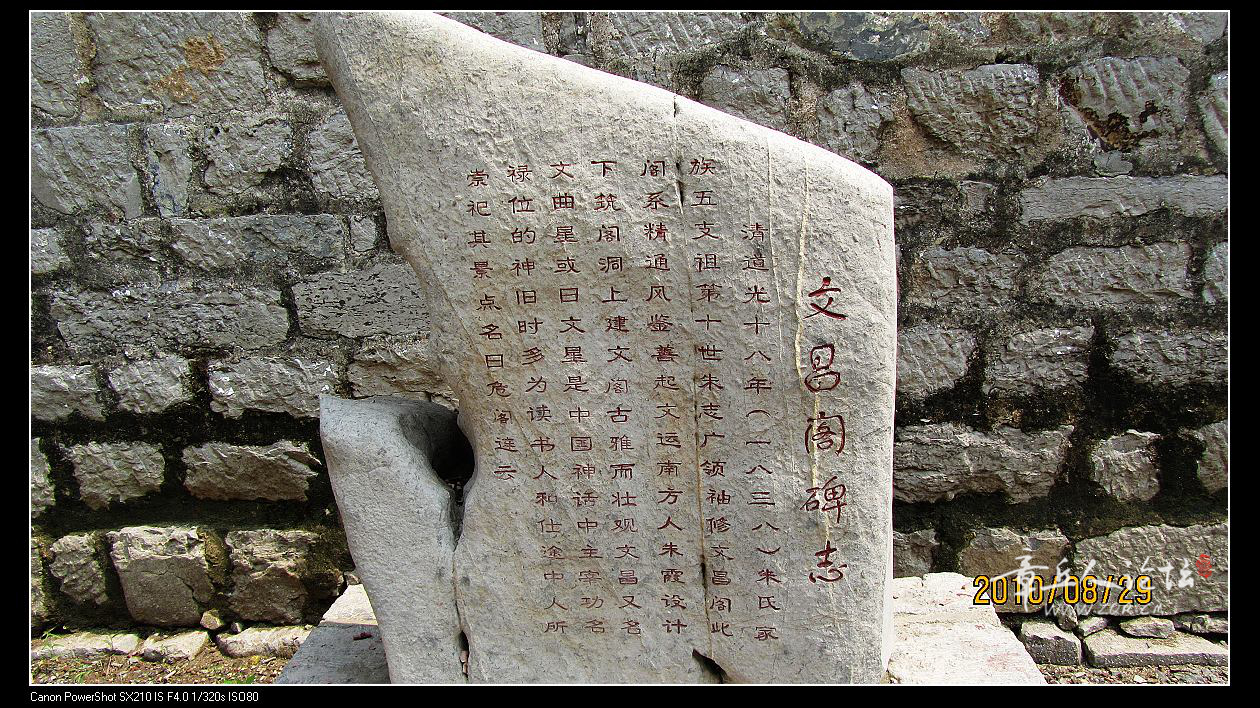 文昌阁碑志
清道光十八年(一八三八)朱氏家
族五支祖第十世朱志广领袖修文昌阁此
阁系精通风鉴善起文运南方人朱霞设计
下筑阁洞上建文阁古雅而壮观文昌又名
文曲星或曰文星是中国神话中主宰功名
禄位的神旧时多为读书人和仕途中人所
崇祀其景点名曰危阁连云
章丘人论坛
2010/08/29
Canon PowerShot SX210 IS F4.0 1/320s ISO80